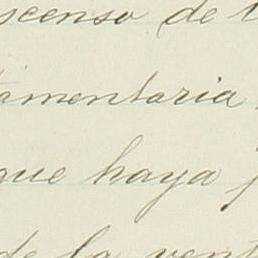 scenso de
amentaria
que haya
de la vent